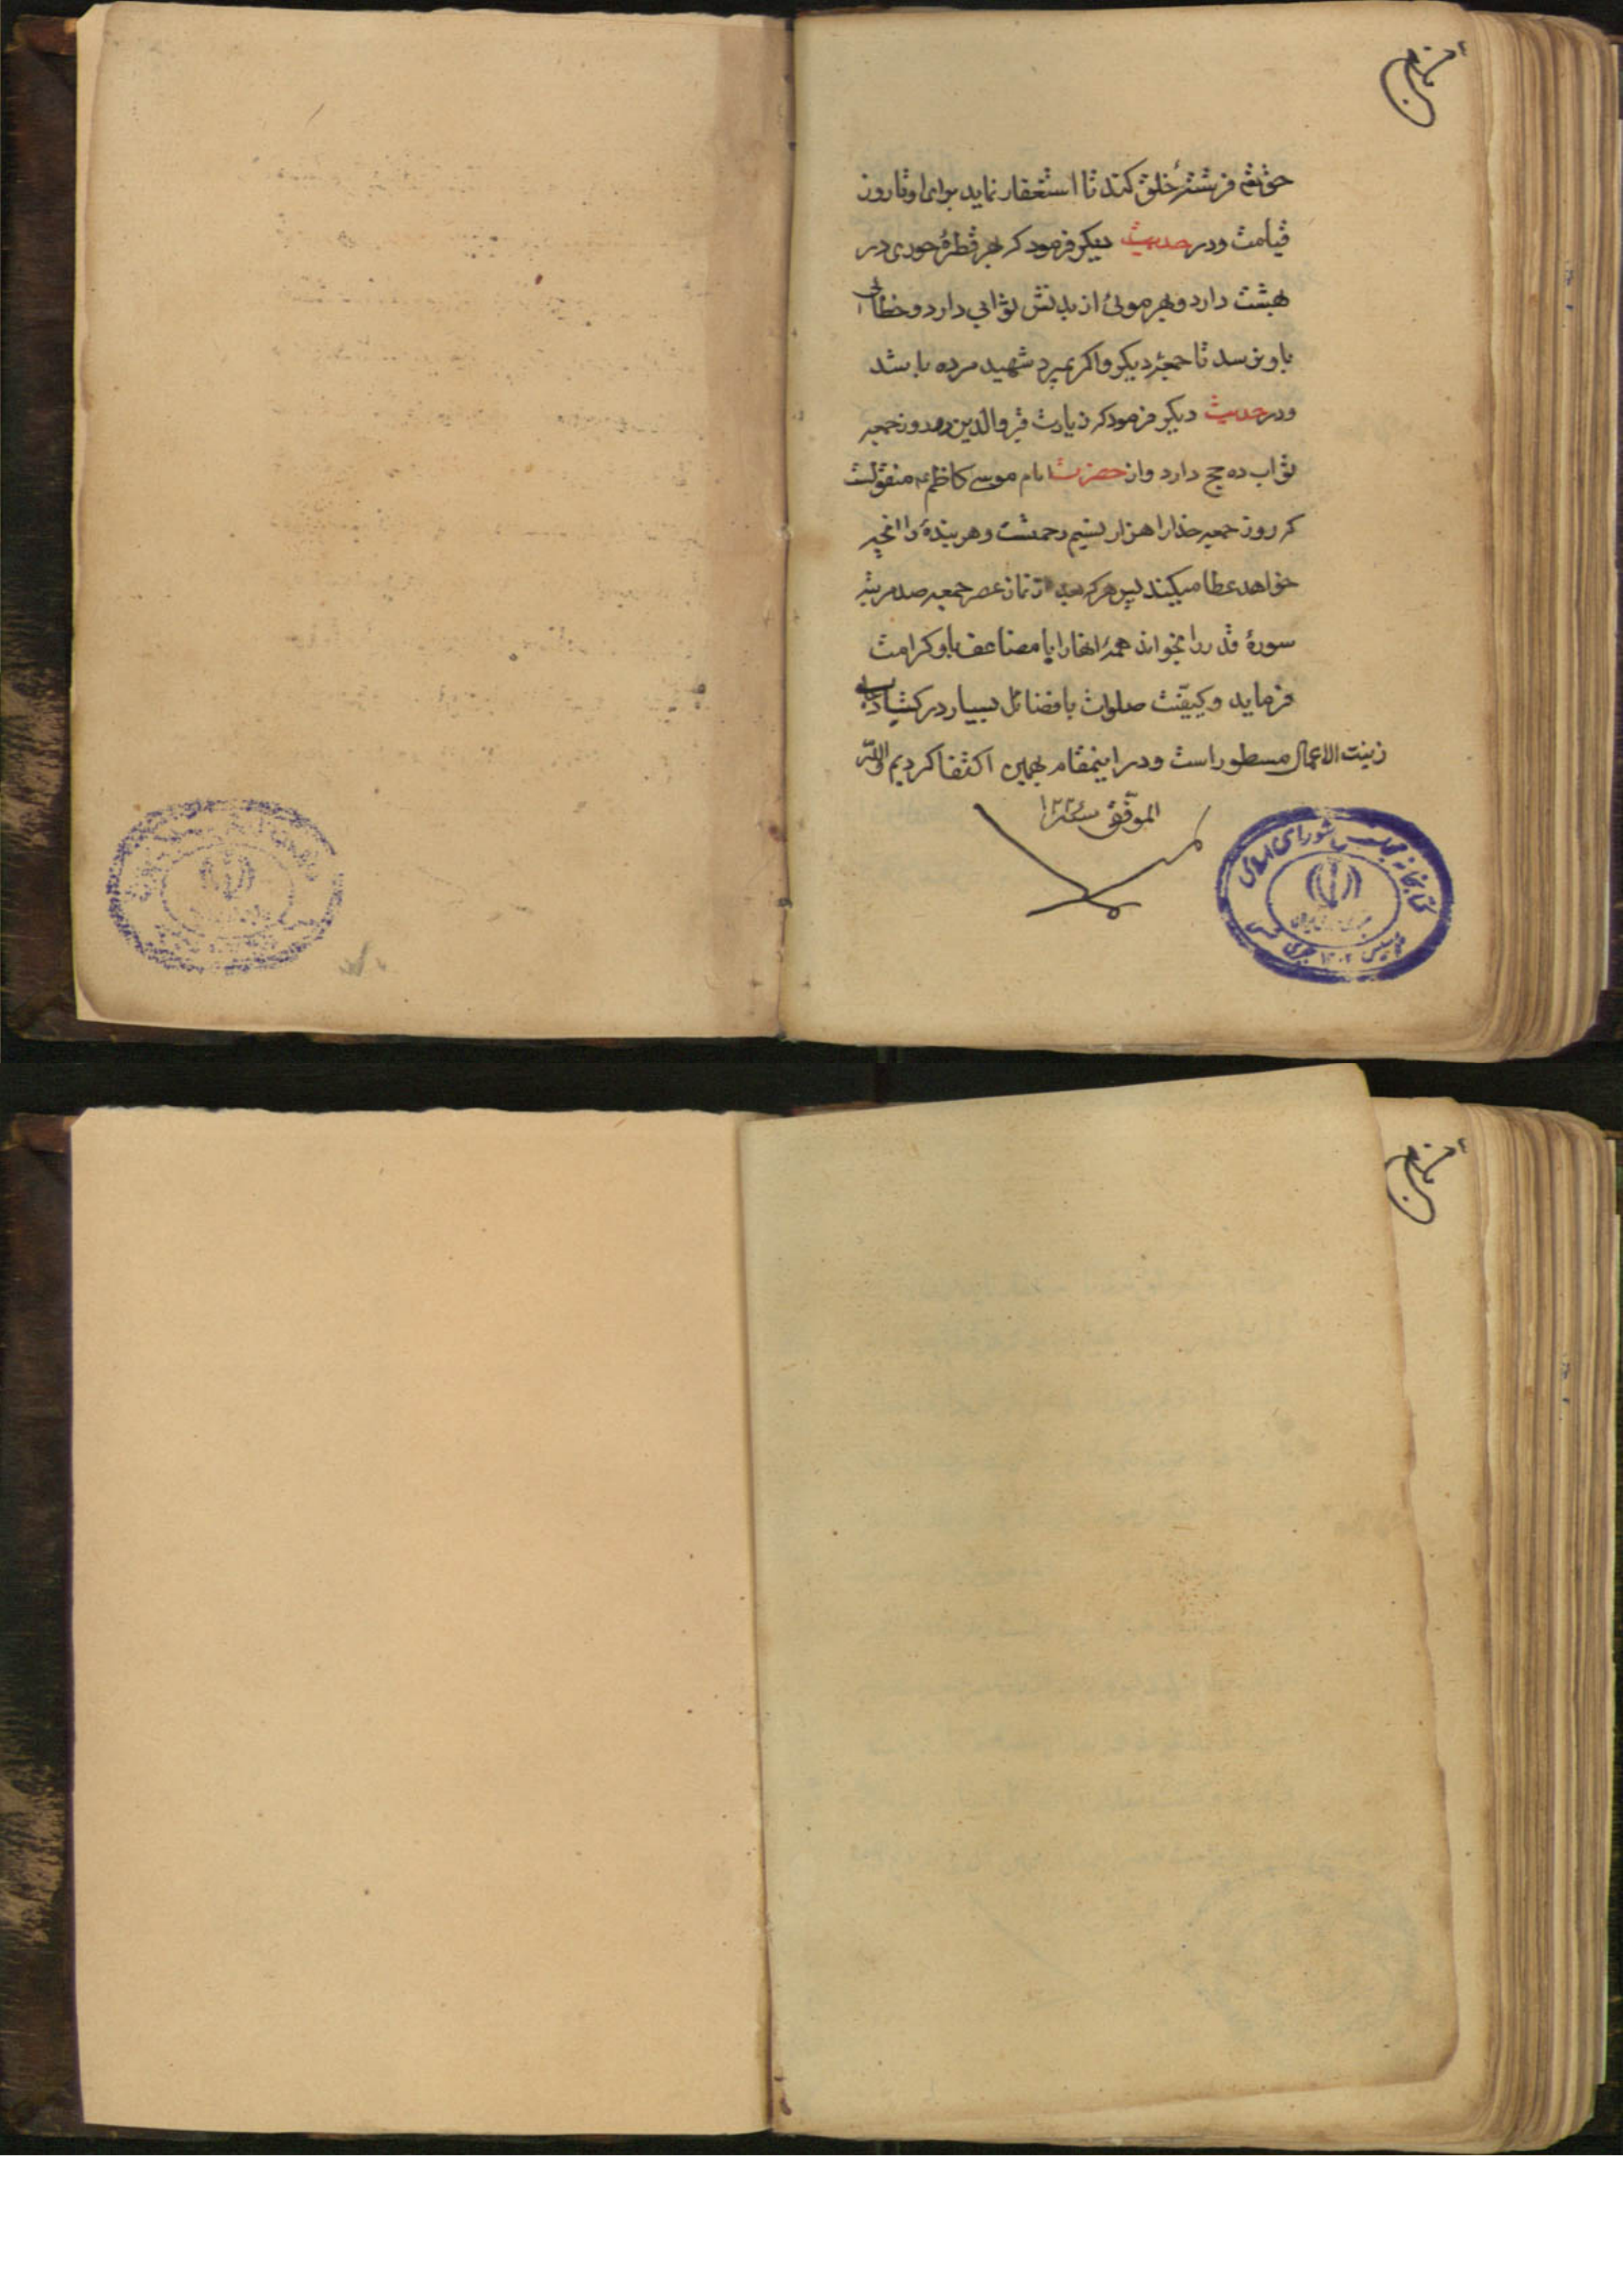 حقتعم فرشتهٔ خلق کند تا استغفار نماید برای او تا روز
قیامت ودر حدیث دیکر فرمود که بهر قطرهٔ حوری در
بهشت دارد وبهر موئی از بدنش ثوابی دارد وخطائی
باو نرسد تا جمعهٔ دیکر واکر بمیرد شهید مرده باشد
ودر حدیث دیکر فرمود که زیارت قبر والدین در روز جمعه
ثواب ده حج دارد واز حضرت امام موسی کاظم ع منقولست
که روز جمعه خدا را هزار نسیم رحمتست وهر بندهٔ را انچه
خواهد عطا میکند پس هرکه بعد از نماز عصر جمعه صد مرتبه
سورهٔ قدر را بخواند همهٔ انها را با مضاعف باو کرامت
فرماید وکیفیت صلوات با فضائل بسیار در کتاب
زینت الاعمال مسطور است ودر اینمقام بهمین اکتفا کردیم والله
الموفق سنه
کتابخانه مجلس شورای اسلامی